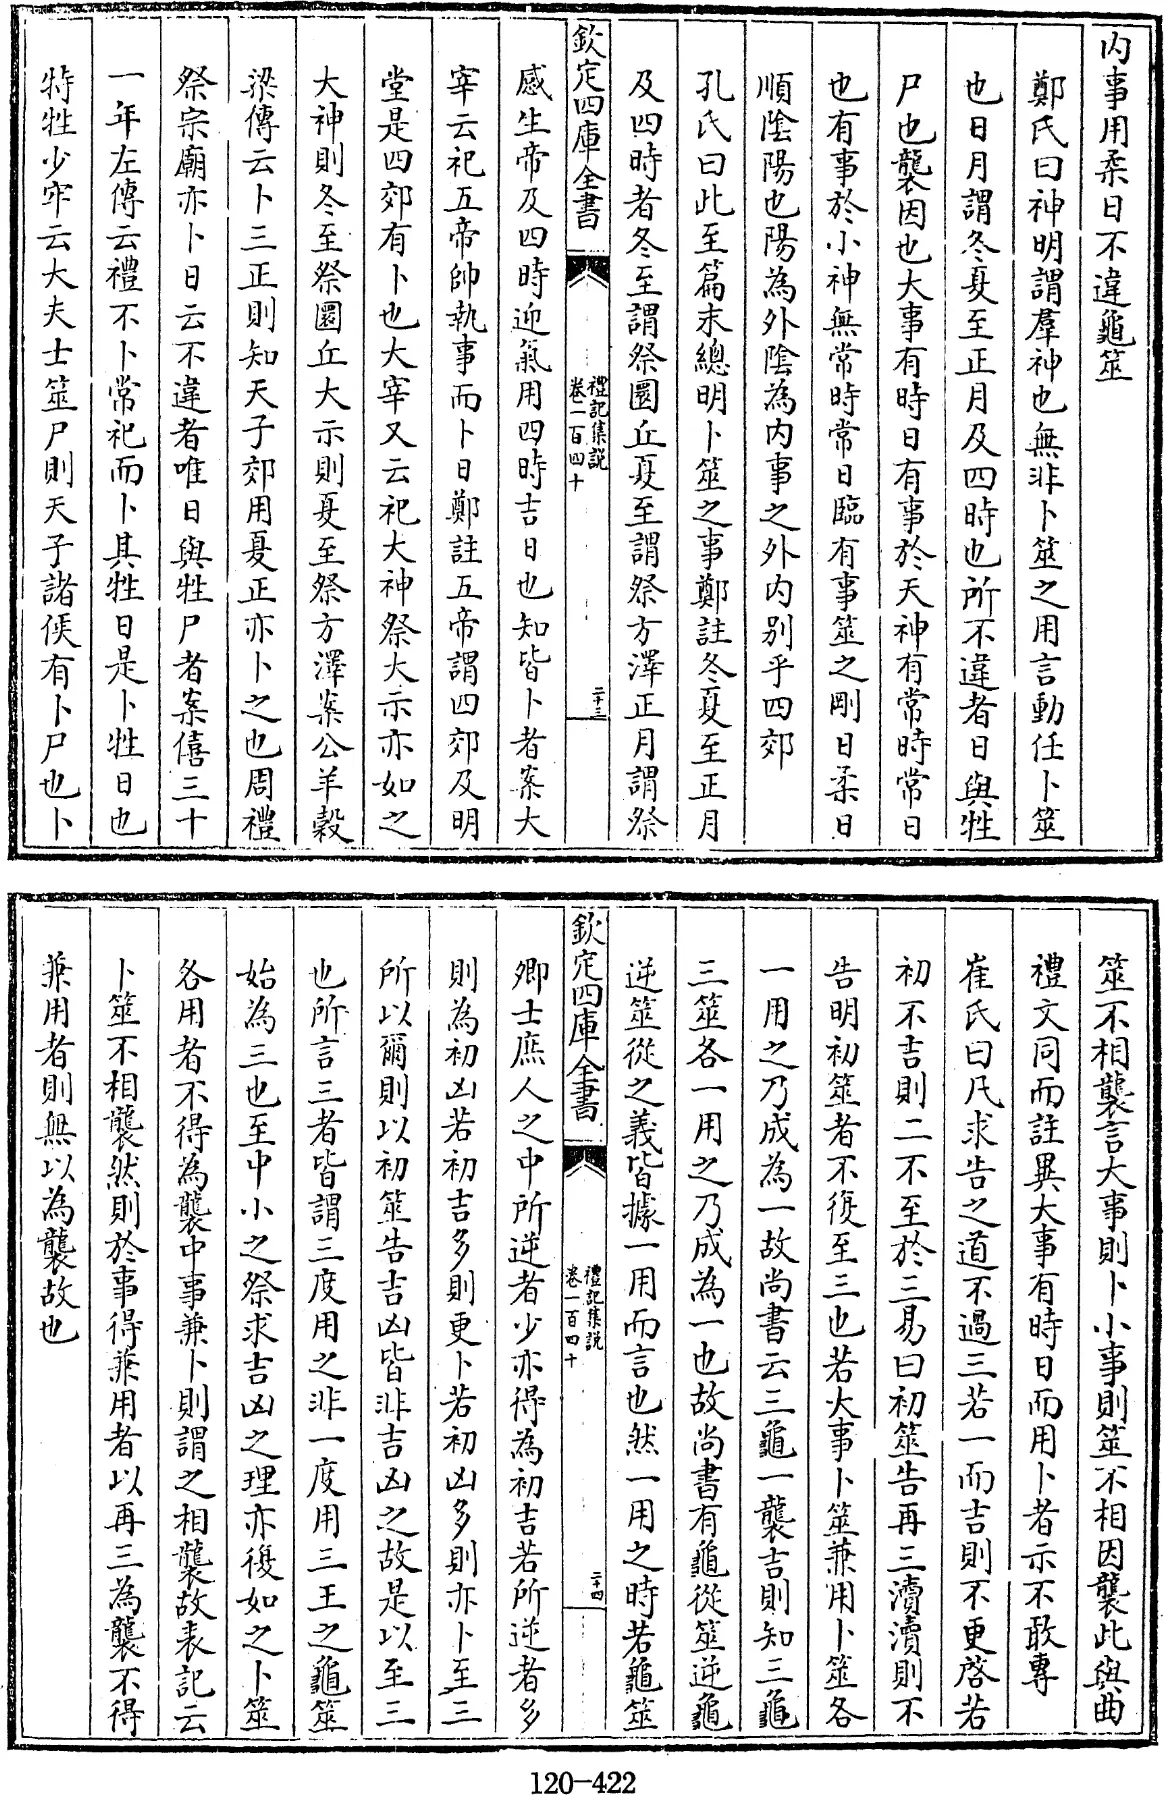 内事用柔日不違龜筮
鄭氏曰神明謂羣神也無非卜筮之用言動任卜筮
也日月謂冬夏至正月及四時也所不違者日與牲
尸也襲因也大事有時日有事於天神有常時常日
也有事於小神無常時常日臨有事筮之剛日柔日
順陰陽也陽為外陰為内事之外内别乎四郊
孔氏曰此至篇末總明卜筮之事鄭註冬夏至正月
及四時者冬至謂祭圜丘夏至謂祭方澤正月謂祭
欽定四庫全書
禮記集說
卷一百四十
二十三
感生帝及四時迎氣用四時吉日也知皆卜者案大
宰云祀五帝帥執事而卜日鄭註五帝謂四郊及明
堂是四郊有卜也大宰又云祀大神祭大示亦如之
大神則冬至祭圜丘大示則夏至祭方澤案公羊穀
梁傳云卜三正則知天子郊用夏正亦卜之也周禮
祭宗廟亦卜日云不違者唯日與牲尸者案僖三十
一年左傳云禮不卜常祀而卜其牲日是卜牲日也
特牲少牢云大夫士筮尸則天子諸侯有卜尸也卜
筮不相襲言大事則卜小事則筮不相因襲此與曲
禮文同而註異大事有時日而用卜者示不敢專
崔氏曰凡求告之道不過三若一而吉則不更啓若
初不吉則二不至於三易曰初筮告再三瀆瀆則不
告明初筮者不復至三也若大事卜筮兼用卜筮各
一用之乃成為一故尚書云三龜一襲吉則知三龜
三筮各一用之乃成為一也故尚書有龜從筮逆龜
逆筮從之義皆據一用而言也然一用之時若龜筮
欽定四庫全書
禮記集說
卷一百四十
二十四
卿士庶人之中所逆者少亦得為初吉若所逆者多
則為初凶若初吉多則更卜若初凶多則亦卜至三
所以爾則以初筮告吉凶皆非吉凶之故是以至三
也所言三者皆謂三度用之非一度用三王之龜筮
始為三也至中小之祭求吉凶之理亦復如之卜筮
各用者不得為襲中事兼卜則謂之相襲故表記云
卜筮不相襲然則於事得兼用者以再三為襲不得
兼用者則無以為襲故也
120-422